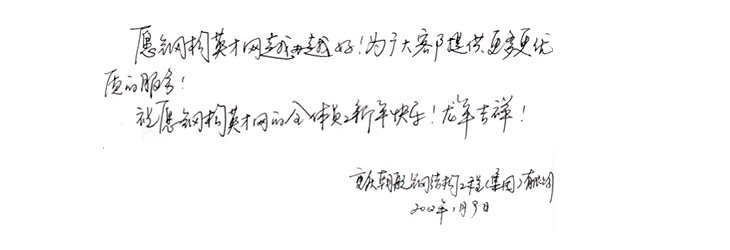 愿钢构英才网越办越好！为广大客户提供更多更优
质的服务！
祝愿钢构英才网的全体员工新年快乐！龙年吉祥！
重庆朝航钢结构工程（集团）有限公司
2012年1月9日